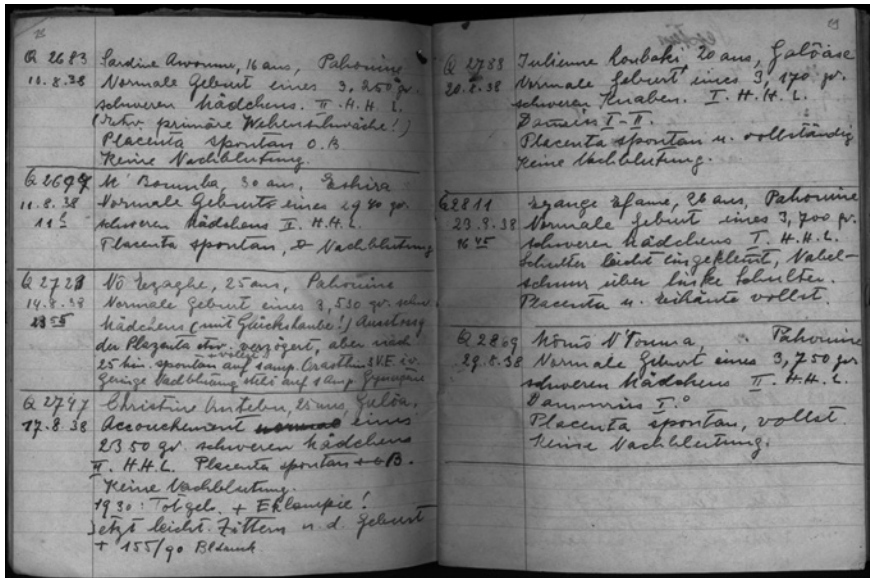 Q 2683 Sardine Awoume, 16 ans, Pahouine
10.8.38 Normale Geburt eines 3,250 gr.
schweren Mädchens. II. H.H.L.
primäre Wehenschwäche!)
Placenta spontan O.B
Keine Nachblutung.
M'Boumba, 30 ans, Eshira
11.8.38 Normale Geburt eines 2940 gr.
11 h schweren Mädchens II. H.H.L.
Placenta spontan, Nachblutung
25 ans, Pahouine
14.8.38 Normale Geburt eines 3,530 gr. schw.
23 55 Mädchens (mit Glückshaube!) Ausstossg
der Plazenta etw. verzögert, aber nach
25 Min. spontan vollst. auf 1 amp. i.v.
Geringe Nachblutung steht auf 1 Amp
Q 2747 Christine 25 ans, Galoa.
17.8.38 Accouchement eines
2350 gr. schweren Mädchens
II. H.H.L. Placenta spontan B.
Keine Nachblutung.
1930: Totgeb. + Eklampsie!
Jetzt leicht. Zittern n. d. Geburt
+ 155/90 Bldruck
29
Julienne 20 ans, Galoase
20.8.38 Normale Geburt eines 3,170 gr.
schweren Knaben. I. H.H.L.
I-II.
Placenta spontan u. vollständig
Keine Nachblutung.
Q 2811 26 ans, Pahouine
23.8.38 Normale Geburt eines 3,700 gr.
16 45 schweren Mädchens I. H.H.L.
Schulter leicht eingeklemt, Nabel-
schnur über linke Schulter.
Placenta u. Eihäute vollst.
Q 2869 N'Touma, Pahouine
29.8.38 Normale Geburt eines 3,750 gr
schweren Mädchens II. H.H.L.
I.°
Placenta spontan, vollst.
Keine Nachblutung.